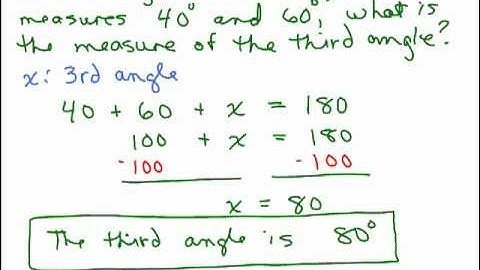 measures 40° and 60°, what is
the measure of the third angle?
x: 3rd angle
40 + 60 + x = 180
100 + x = 180
-100 -100
x = 80
The third angle is 80°